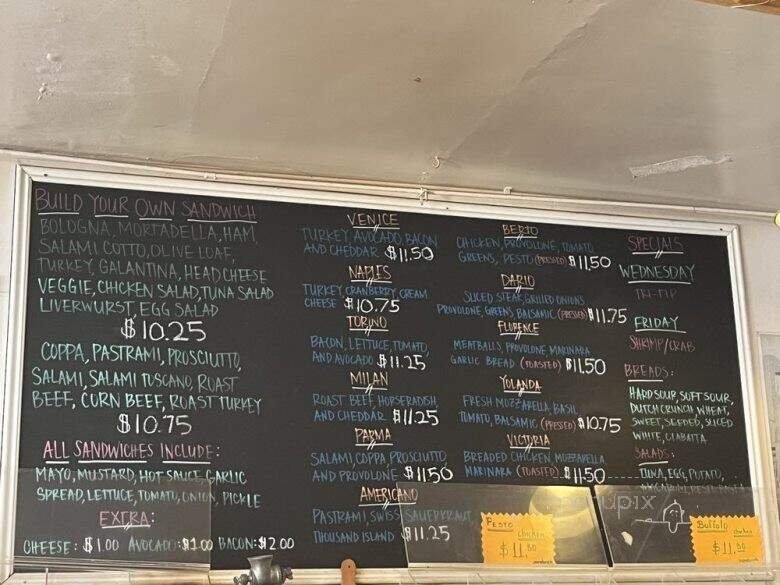 BUILD YOUR OWN SANDWICH
BOLOGNA, MORTADELLA, HAM
SALAMI COTTO, OLIVE LOAF,
TURKEY, GALANTINA, HEAD CHEESE
VEGGIE, CHICKEN SALAD, TUNA SALAD
LIVERWURST, EGG SALAD
$10.25
COPPA, PASTRAMI, PROSCIUTTO,
SALAMI, SALAMI TOSCANO, ROAST
BEEF, CORN BEEF, ROAST TURKEY
$10.75
ALL SANDWICHES INCLUDE:
MAYO, MUSTARD, HOT SAUCE, GARLIC
SPREAD, LETTUCE, TOMATO, ONION, PICKLE
EXTRA:
CHEESE: $1.00 AVOCADO: $1.00 BACON: $2.00
VENICE
TURKEY, AVOCADO, BACON
AND CHEDDAR $11.50
NAPLES
TURKEY, CRANBERRY, CREAM
CHEESE $10.75
TORINO
BACON, LETTUCE, TOMATO,
AND AVOCADO $11.25
MILAN
ROAST BEEF, HORSERADISH,
AND CHEDDAR $11.25
PARMA
SALAMI, COPPA, PROSCIUTTO
AND PROVOLONE $11.50
AMERICANO
PASTRAMI, SWISS, SAUERKRAUT,
THOUSAND ISLAND $11.25
BERTO
CHICKEN, PROVOLONE, TOMATO
GREENS, PESTO (PRESSED) $11.50
DARIO
SLICED STEAK, GRILLED ONIONS
PROVOLONE, GREENS, BALSAMIC (PRESSED) $11.75
FLORENCE
MEATBALLS, PROVOLONE, MARINARA
GARLIC BREAD (TOASTED) $11.50
YOLANDA
FRESH MOZZARELLA, BASIL
TOMATO, BALSAMIC (PRESSED) $10.75
VICTORIA
BREADED CHICKEN, MOZZARELLA
MARINARA (TOASTED) $11.50
Pesto
chicken
$11.50
SPECIALS
WEDNESDAY
TRI-TIP
FRIDAY
SHRIMP/CRAB
BREADS:
HARD SOUR, SOFT SOUR,
DUTCH CRUNCH, WHEAT,
SWEET, SEEDED, SLICED
WHITE, CIABATTA
SALADS:
TUNA, EGG, POTATO,
MACARONI, PESTO PASTA
Buffalo
chicken
$11.50